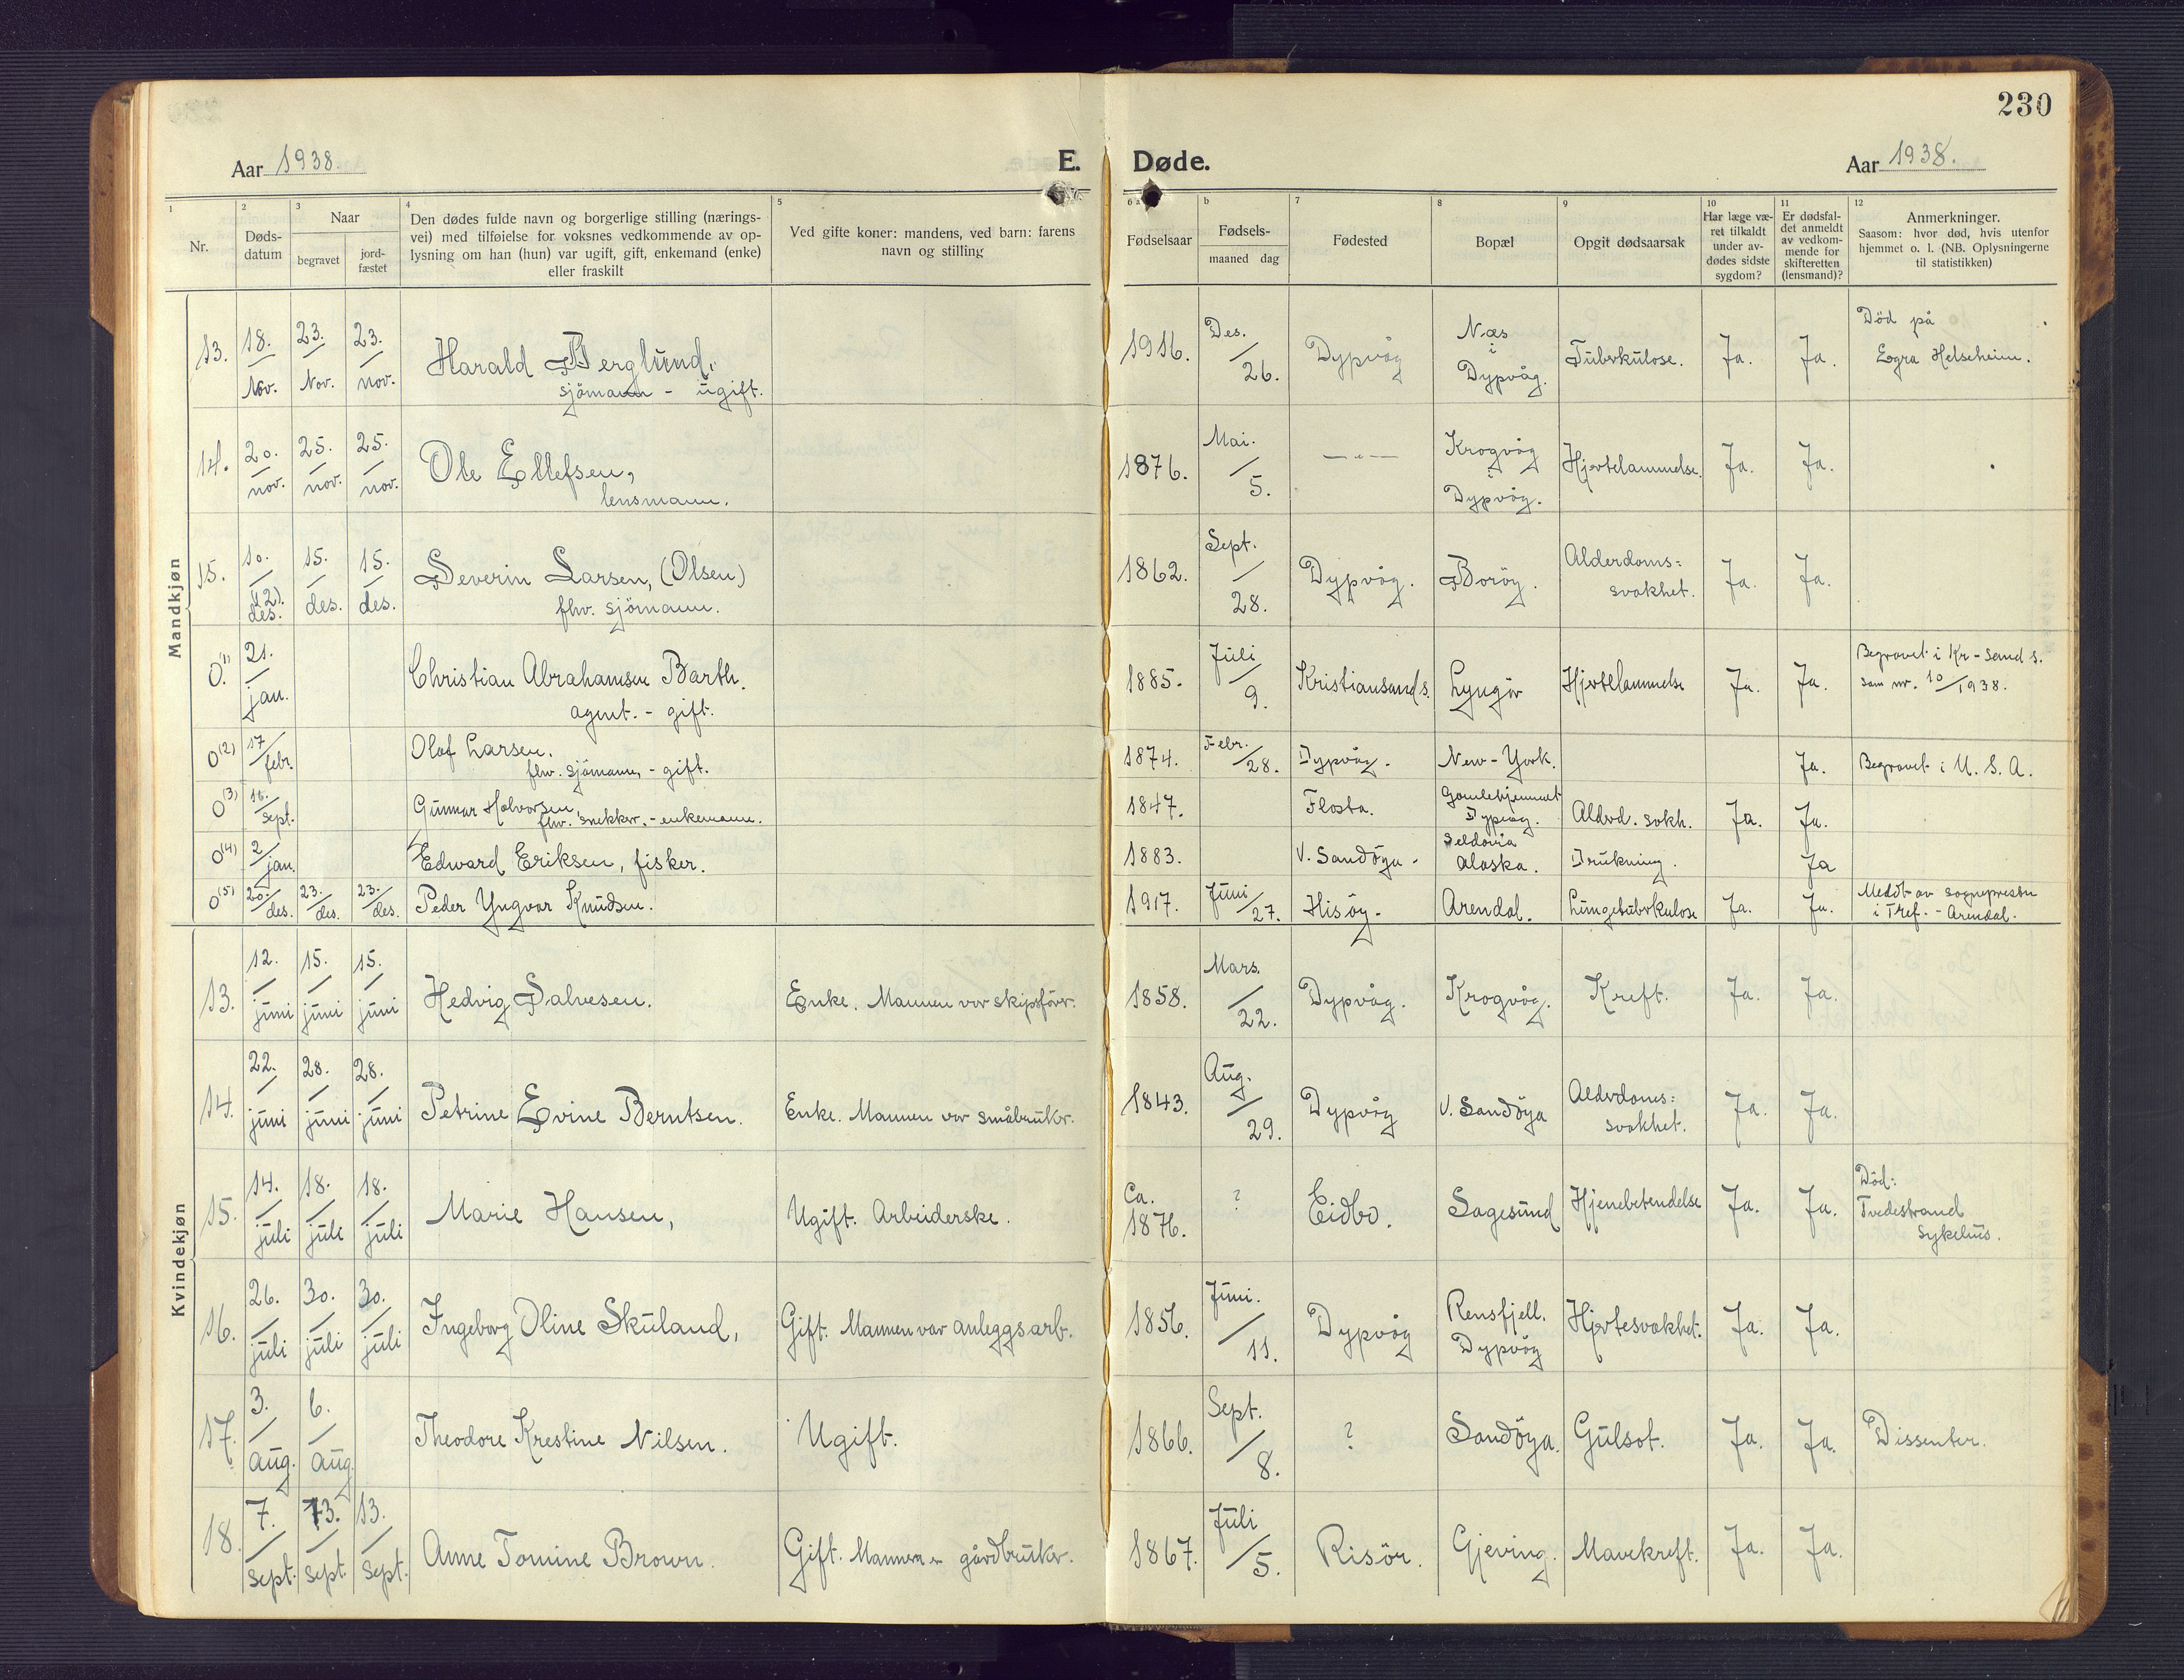 230
Aar 1938. E. Døde. Aar 1938.
1 Nr.
2 Døds-
datum
3 Naar
begravet
jord-
fæstet
4 Den dødes fulde navn og borgerlige stilling (nærings-
vei) med tilføielse for voksnes vedkommende av op-
lysning om han (hun) var ugift, gift, enkemand (enke)
eller fraskilt
5 Ved gifte koner: mandens, ved barn: farens
navn og stilling
6 a Fødselsaar
b Fødsels-
maaned dag
7 Fødested
8 Bopæl
9 Opgit dødsaarsak
10 Har læge væ-
ret tilkaldt
under av-
dødes sidste
sygdom?
11 Er dødsfal-
det anmeldt
av vedkom-
mende for
skifteretten
(lensmand)?
12 Anmerkninger.
Saasom: hvor død, hvis utenfor
hjemmet o. l. (NB. Oplysningerne
til statistikken)
Mandkjøn
13. 18./Nov. 23./Nov. 23./nov. Harald Berglund,
sjömann - ugift.
1916. Des./26. Dypvåg Næs
i
Dypvåg. Tuberkulose. Ja. Ja. Död på
Egra Helseheim.
14. 20./nov. 25./nov. 25./nov. Ole Ellefsen,
lensmann.
1876. Mai./5. —"— Krogvåg
i
Dypvåg. Hjertelammelse. Ja. Ja.
15. 10./des. 15./des. 15./des. Severin Larsen, (Olsen)
fhv. sjömann.
1862. Sept./28. Dypvåg. Boröy. Alderdoms=
svakhet. Ja. Ja.
0.1) 21./jan. Christian Abrahamsen Barth.
agent. - gift.
1885. Juli/9. Kristiansand s. Lyngör Hjertelammelse Ja. Ja. Begravet i Kr-sand s.
som nr. 10/1938.
0(2) 17/febr. Olaf Larsen.
fhv. sjömann, - gift.
1874. Febr./28. Dypvåg. New-York. Ja. Begravet i U. S. A.
0(3) 16./sept. Gunnar Halvorsen,
fhv. snekker. - enkemann.
1847. Flosta. Gamlehjemmet
Dypvåg. Alderd. svkh. Ja. Ja.
0(4) 2/jan. Edward Eriksen, fisker.
1883. V. Sandöya. Seldovia
Alaska. Drukning. Ja
0(5) 20./des. 23./des. 23./des. Peder Yngvar Knudsen.
1917. Juni/27. Hisöy. Arendal. Lungetuberkulose Ja. Ja. Meddt av sognepresten
i Tref. - Arendal.
Kvindekjøn
13. 12./juni 15./juni 15./juni Hedvig Salvesen. Enke. Mannen var skipsförer.
1858. Mars./22. Dypvåg. Krogvåg. Kreft. Ja. Ja.
14. 22./juni 28./juni 28./juni Petrine Evine Berntsen. Enke. Mannen var småbruker.
1843. Aug./29. Dypvåg V. Sandöya Alderdoms=
svakhet. Ja. Ja.
15. 14./juli 18./juli 18./juli Marie Hansen, Ugift. Arbeiderske.
Ca.
1876. ? Eidbo. Sagesund Hjenebetendelse Ja. Ja. Död:
Tvedestrand
Sykehus.
16. 26./juli 30./juli 30./juli Ingeborg Oline Skuland, Gift. Mannen var anleggsarb.
1856. Juni./11. Dypvåg Rensfjell.
Dypvåg Hjertesvakhet. Ja. Ja.
17. 3./aug. 6./aug. Theodore Krestine Nilsen. Ugift.
1866. Sept./8. ? Sandöya. Gulsot. Ja. Ja. Dissenter.
18. 7./sept. 13./sept. 13./sept. Anne Tomine Brown. Gift. Mannen er gårdbruker.
1867. Juli/5. Risör. Gjeving. Mavekreft. Ja. Ja.